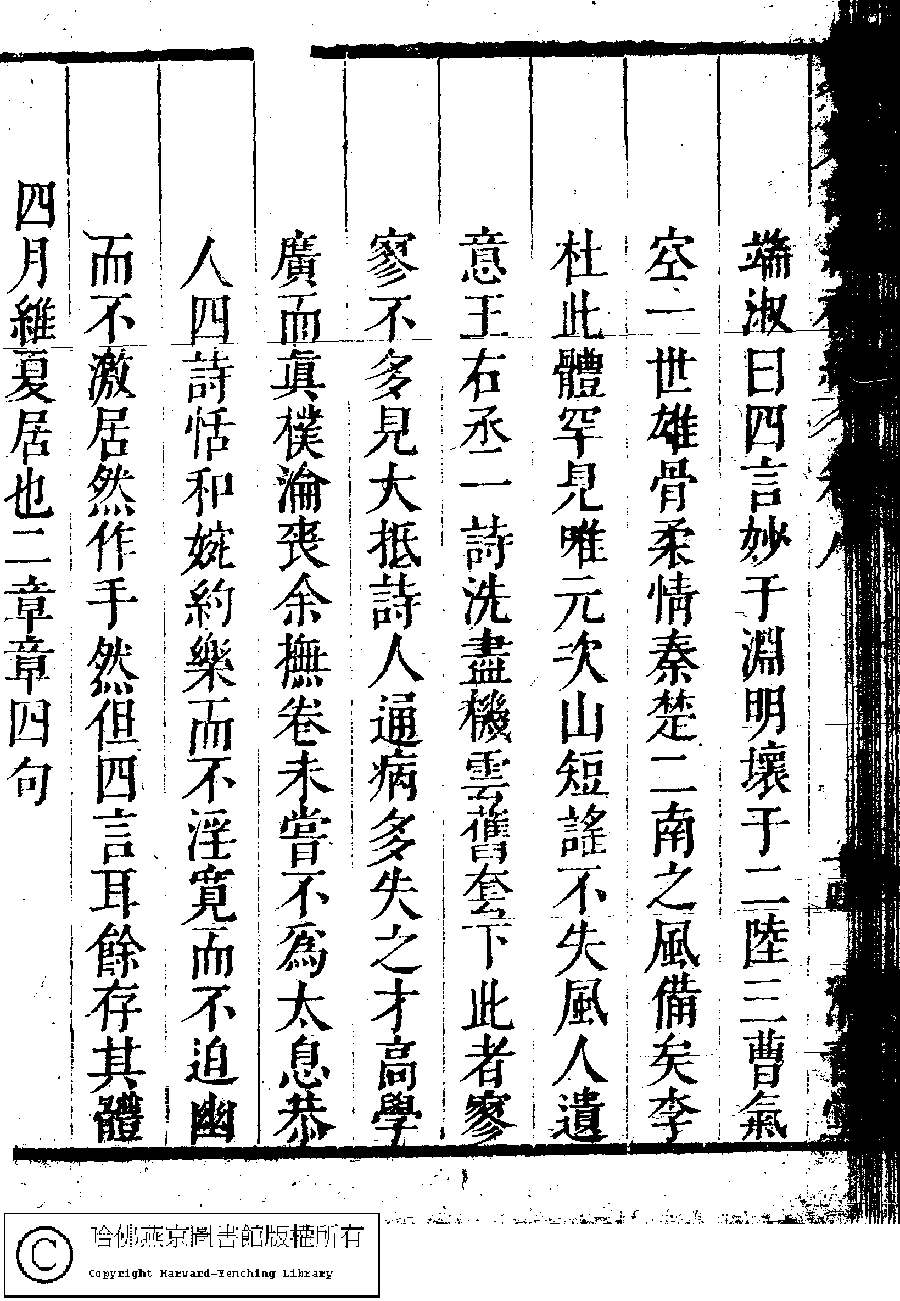 端淑曰四言妙于淵明壞于二陸三曹氣
空一世雄骨柔情秦楚二南之風備矣李
杜此體罕見唯元次山短謠不失風人遺
意王右丞一詩洗盡機雲舊套下此者寥
寥不多見大抵詩人通病多失之才高學
廣而真樸淪喪余撫卷未嘗不為太息恭
人四詩恬和婉約樂而不淫寬而不迫幽
而不激居然作手然但四言耳餘存其體
四月維夏居也二章章四句
哈佛燕京圖書館版權所有
Copyright Harvard-Yenching Library